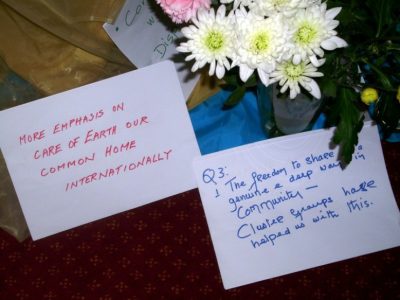 MORE EMPHASIS ON
CARE OF EARTH OUR
COMMON HOME
INTERNATIONALLY
Q3:
The freedom to share
genuine & deep way in
Community —
Cluster groups have
helped us with this.